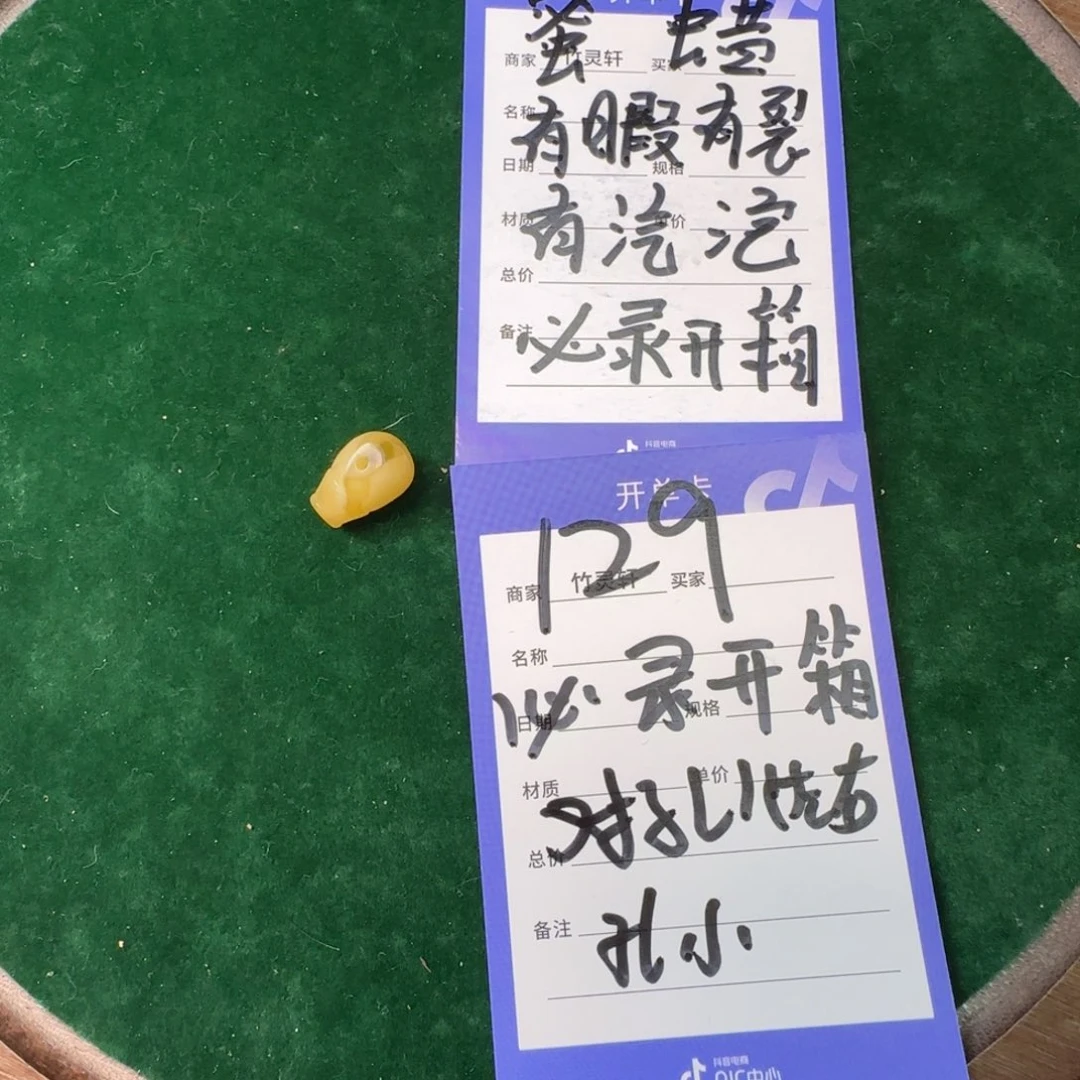 蜜蜡
商家 竹灵轩 买家
名称
有暇有裂
日期 规格
材质 单价
有
总价
备注
必录开箱
抖音电商
开单卡
129
商家 竹灵轩 买家
名称
必录开箱
日期 规格
材质 单价
总价
备注
孔小
抖音电商
QIC中心